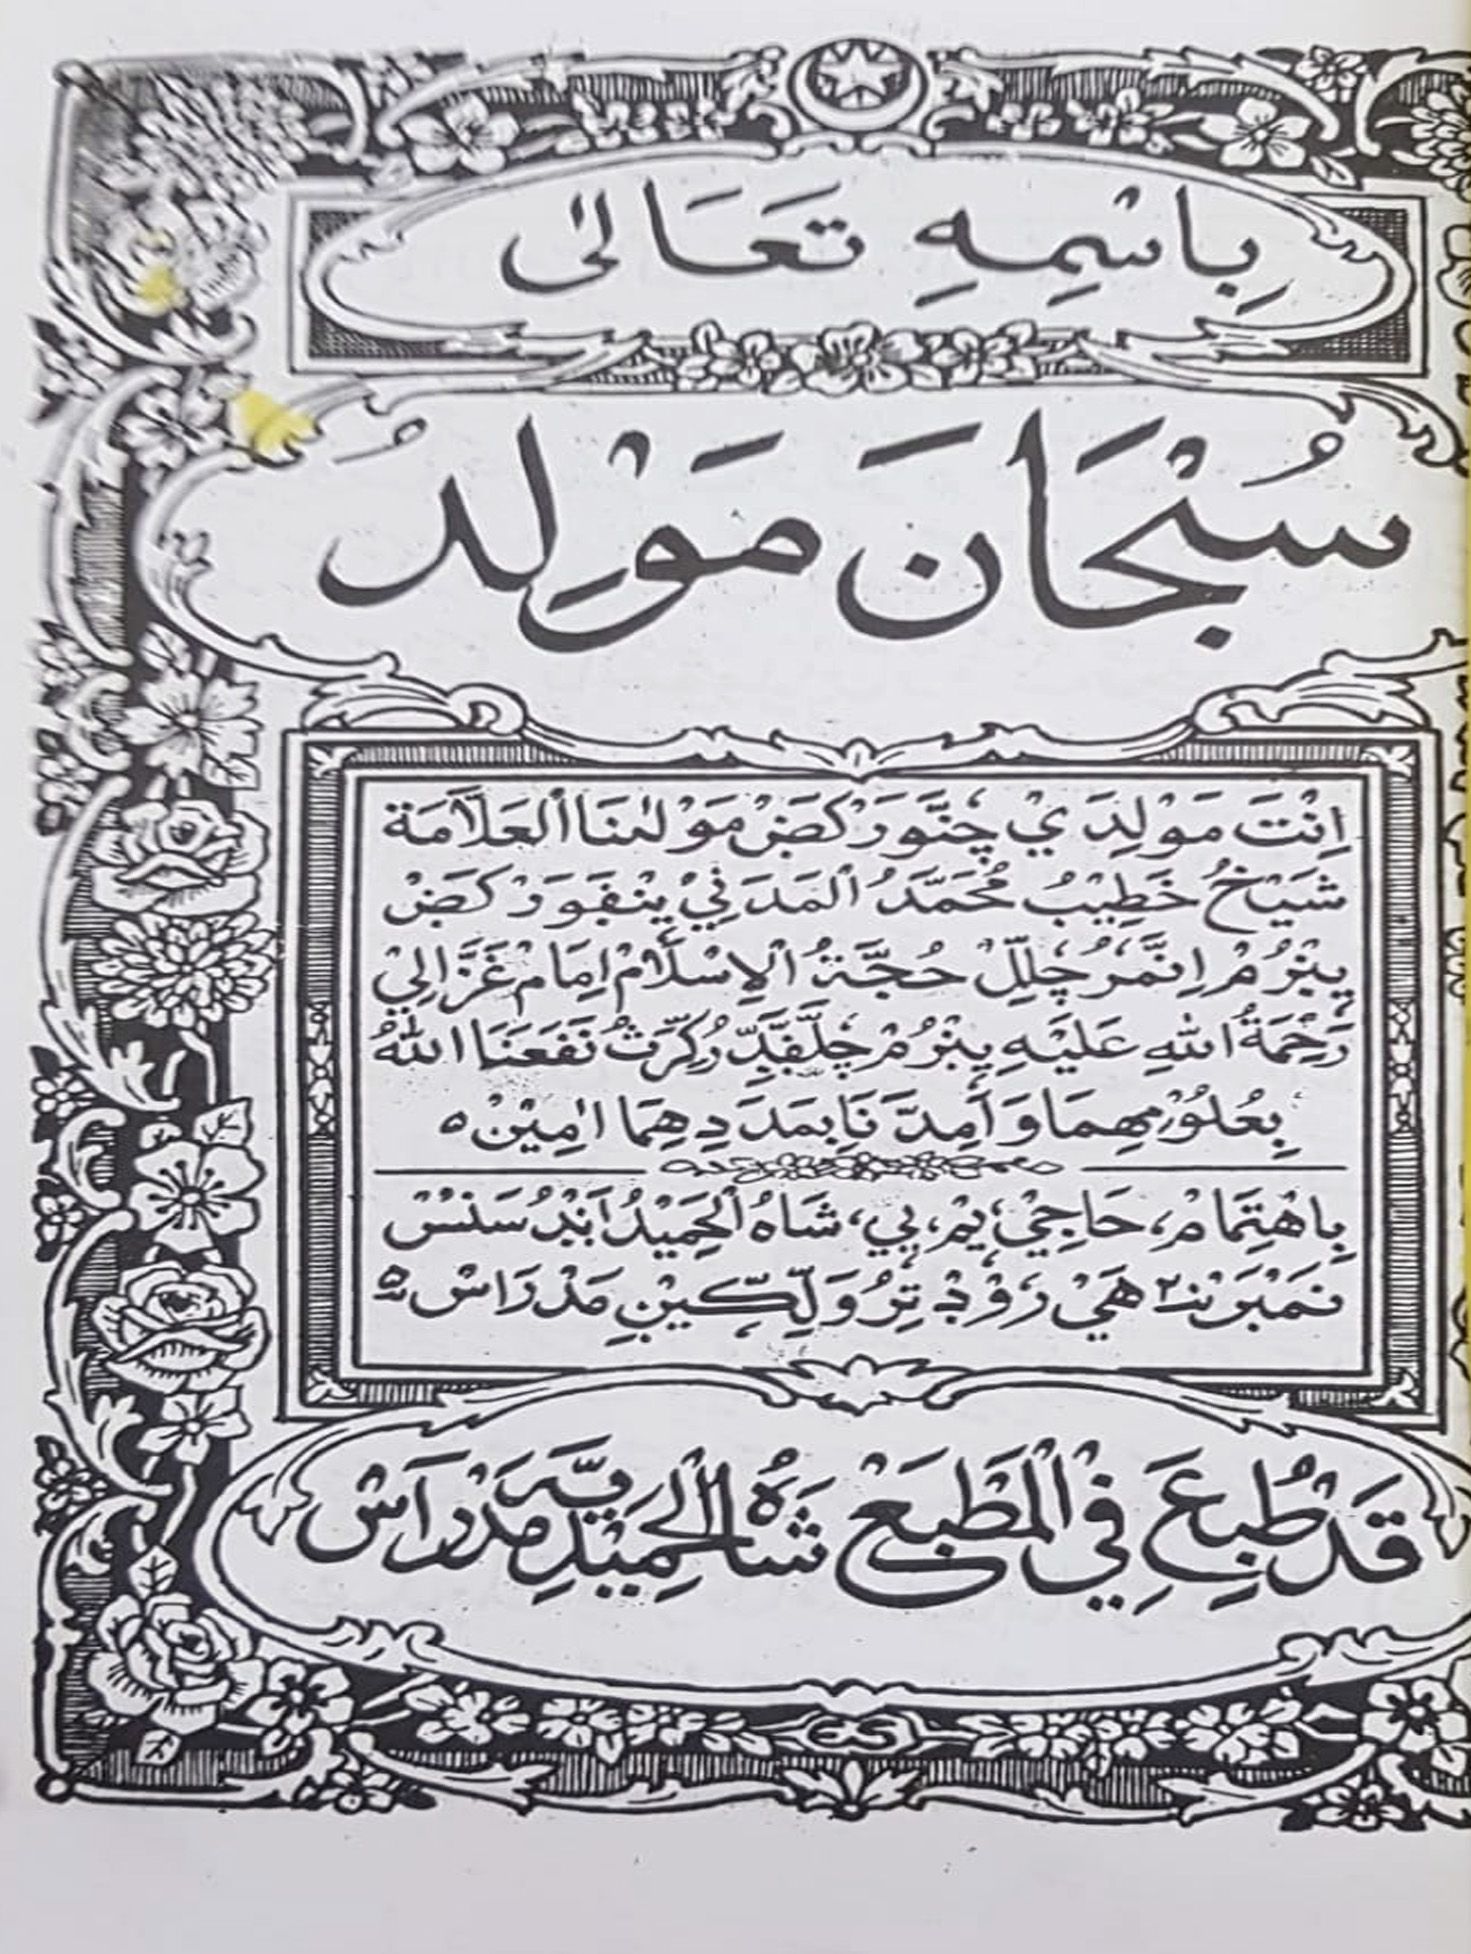 بِاسْمِهِ تَعَالىٰ
سُبْحَانَ مَوْلِدْ
اِنْتَ مَوْلِدَيْ چٜنَّوَرْكَضْ مَوْلٰىنَا الْعَلَّامَةْ
شَيْخُ خَطِيْبُ مُحَمَّدُ الْمَدَنِيْ يٜنْفَوَرْكَضْ
يٜنْرُمْ اِنَّمُرْ چِلَلْ حُجَّةُ الْاِسْلَامْ اِمَامْ غَزَّالِيْ
رَحْمَةُ اللّٰهِ عَلَيْهِ يٜنْرُمْ چٜلَّفَّدِّرُكِّرَتُ نَفَعَنَا اللّٰهُ
بِعُلُوْمِهِمَا وَاَمِدَّنَا بِمَدَدِهِمَا اٰمِيْنْ ه
بِاهْتِمَامْ، حَاجِيْ، يٜمْ، بِيْ، شَاهُ الْحَمِيْدُ اَنْدُ سَنْسْ
نَمْبَرْ ٢ هَيْ رٗوْڊْ تِرُوَلِّكّٜيْنِ مَدْرَاسْ ۵
قَدْ طُبِعَ فِي الْمَطْبَعْ شَاهُ الْحَمِيْدِيَّه مَدْرَاسْ